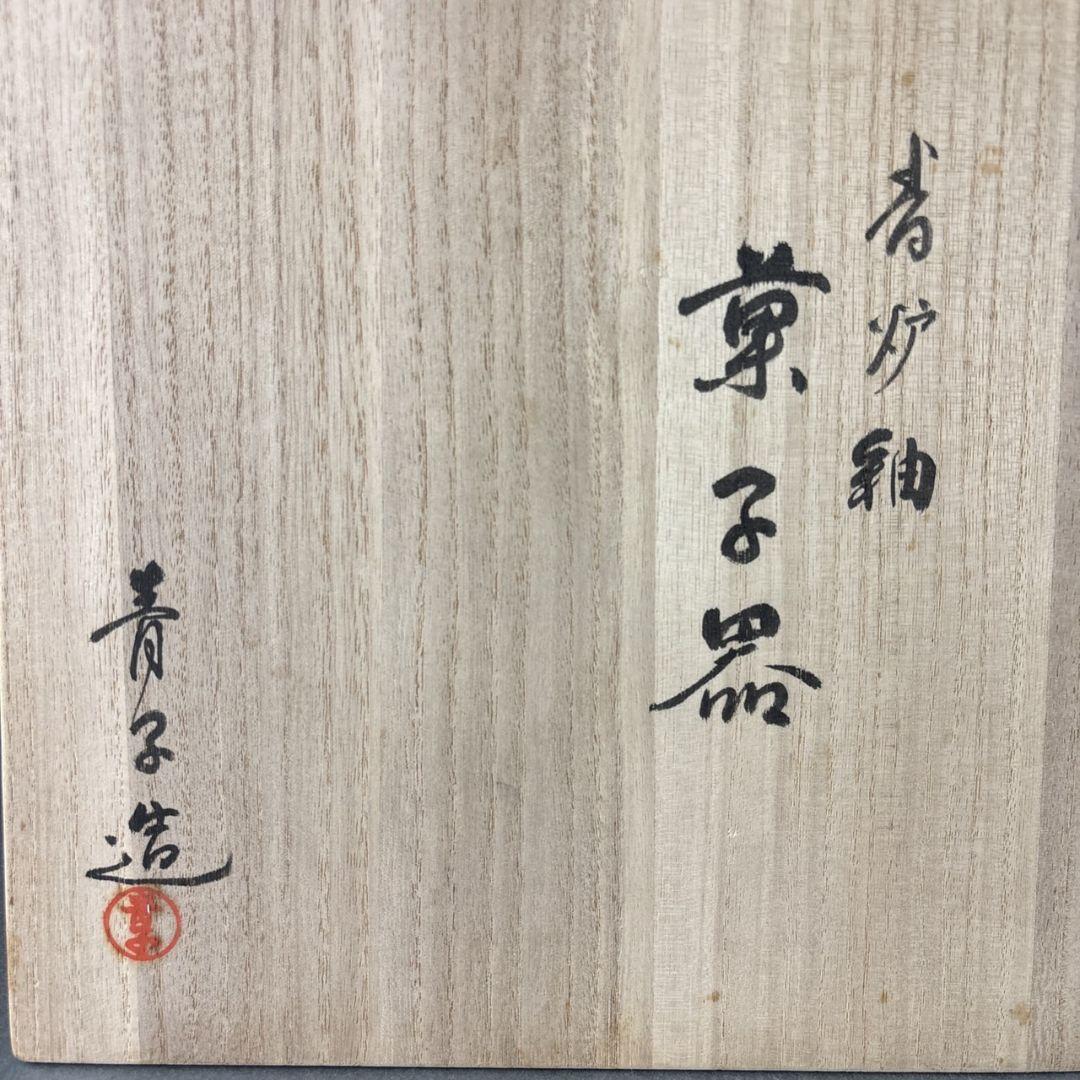 青炉釉
菓子器
青子造